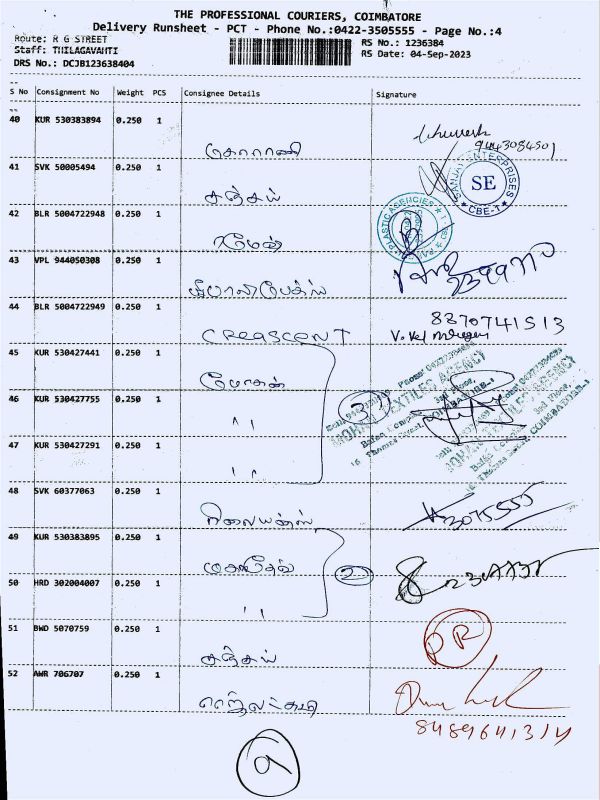 THE PROFESSIONAL COURIERS, COIMBATORE
Delivery Runsheet - PCT - Phone No.:0422-3505555 - Page No.:4
Route: R G STREET
RS No.: 1236384
Staff: THILAGAVAHTI
RS Date: 04-Sep-2023
DRS No.: DCJB123638404
S No Consignment No Weight PCS Consignee Details Signature
40 KUR 530383894 0.250 1
9443084501
41 SVK 50005494 0.250 1
சஞ்சய்
SE
ENTERPRISES
CBE-1
42 BLR 5004722948 0.250 1
ரமேஷ்
PLASTIC AGENCIES
43 VPL 944050308 0.250 1
44 BLR 5004722949 0.250 1
CREASCENT
8870741513
V. Vel murugan
45 KUR 530427441 0.250 1
மோகன்
46 KUR 530427755 0.250 1
" 3
MOHAN TEXTILES AGENCY
47 KUR 530427291 0.250 1
"
48 SVK 60377063 0.250 1
ரிலையன்ஸ்
49 KUR 530383895 0.250 1
2
50 HRD 302004007 0.250 1
"
51 BWD 5070759 0.250 1
சஞ்சய்
PR
52 AWR 706707 0.250 1
8489641314
9